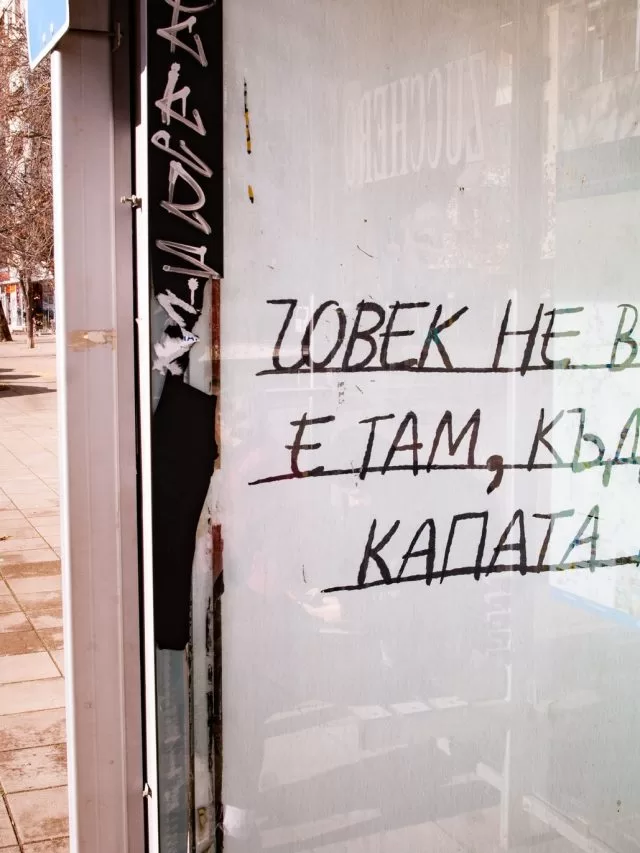 ZUCCHERO
ЧОВЕК НЕ В
Е ТАМ, КЪД
КАПАТА